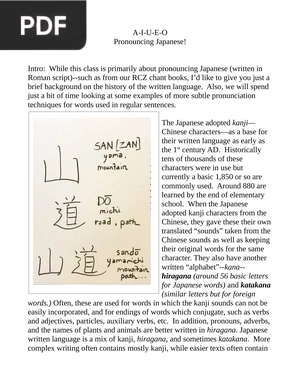 PDF
A-I-U-E-O
Pronouncing Japanese!
Intro: While this class is primarily about pronouncing Japanese (written in
Roman script)--such as from our RCZ chant books, I'd like to give you just a
brief background on the history of the written language. Also, we will spend
just a bit of time looking at some examples of more subtle pronunciation
techniques for words used in regular sentences.
山
SAN [ZAN]
yama,
mountain
道
DŌ
michi
road, path
山道
sandō
yamamichi
mountain
path
The Japanese adopted kanji—
Chinese characters—as a base for
their written language as early as
the 1st century AD. Historically
tens of thousands of these
characters were in use but
currently a basic 1,850 or so are
commonly used. Around 880 are
learned by the end of elementary
school. When the Japanese
adopted kanji characters from the
Chinese, they gave these their own
translated “sounds” taken from the
Chinese sounds as well as keeping
their original words for the same
character. They also have another
written “alphabet”--kana--
hiragana (around 56 basic letters
for Japanese words) and katakana
(similar letters but for foreign
words.) Often, these are used for words in which the kanji sounds can not be
easily incorporated, and for endings of words which conjugate, such as verbs
and adjectives, particles, auxiliary verbs, etc. In addition, pronouns, adverbs,
and the names of plants and animals are better written in hiragana. Japanese
written language is a mix of kanji, hiragana, and sometimes katakana. More
complex writing often contains mostly kanji, while easier texts often contain